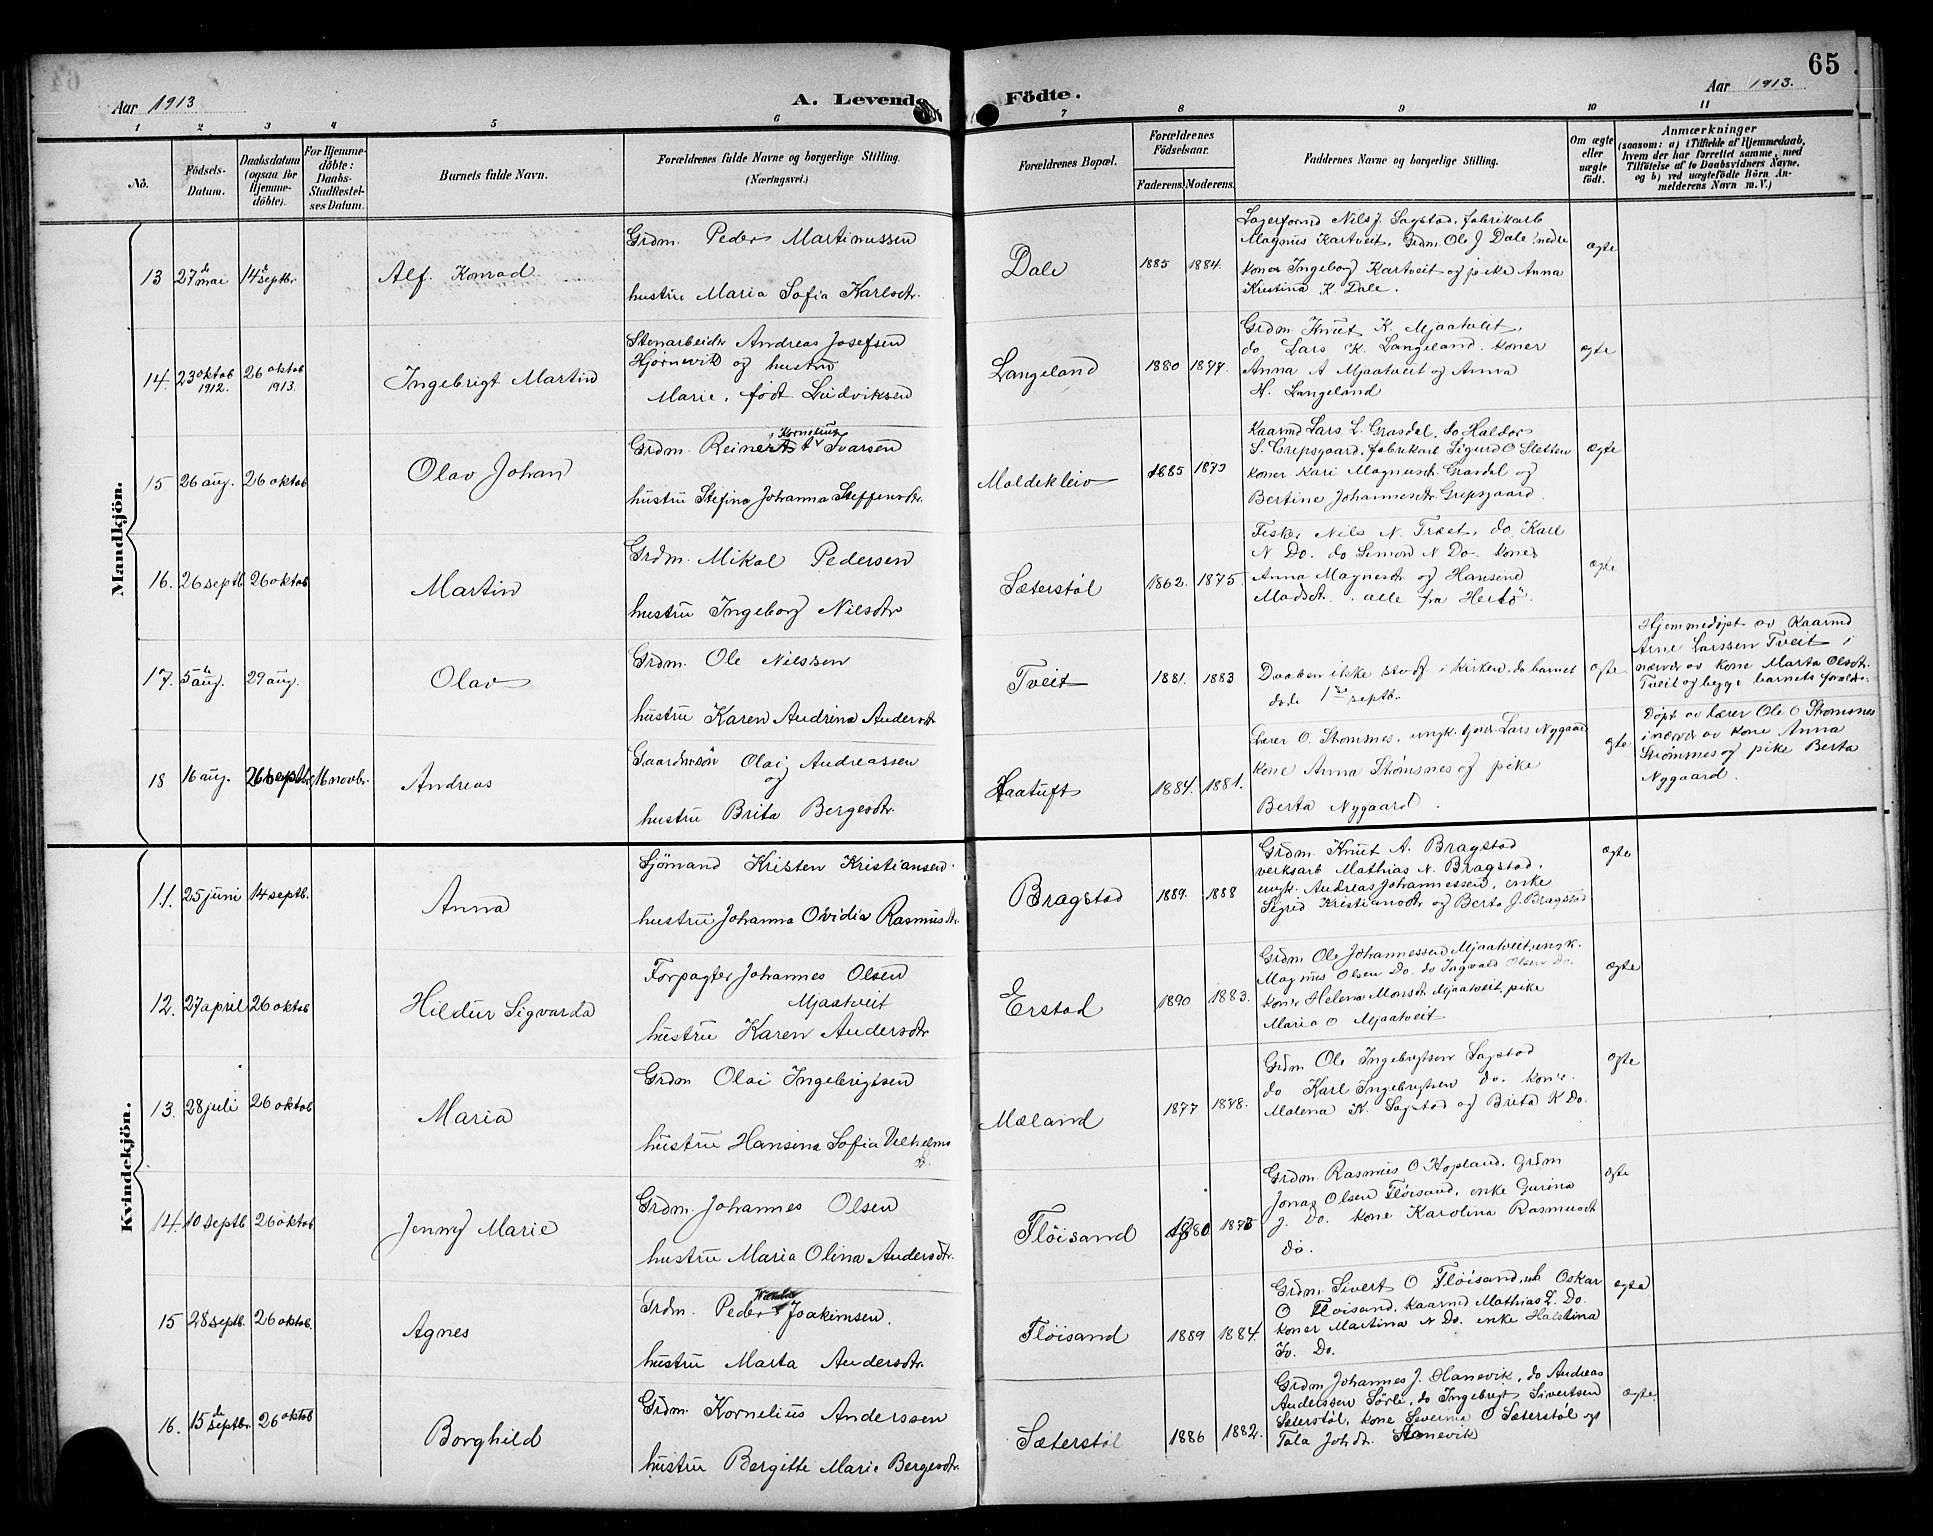 65
Aar 1913
A. Levende Födte.
Aar 1913.
1 2 3 4 5 6 7 8 9 10 11
No.
Födsels-
Datum.
Daabsdatum
(ogsaa for
Hjemme-
döbte).
For Hjemme-
döbte:
Daabs-
Stadfæstel-
ses Datum.
Barnets fulde Navn.
Forældrenes fulde Navne og borgerlige Stilling.
(Næringsvei.)
Forældrenes Bopæl.
Forældrenes
Födselsaar.
Faderens. Moderens.
Faddernes Navne og borgerlige Stilling.
Om ægte
eller
uægte
födt.
Anmærkninger
(saasom: a) i Tilfælde af Hjemmedaab,
hvem der har forrettet samme, med
Tilföielse af to Daabsvidners Navne,
og b) ved uægtefödte Börn An-
melderens Navn m. V.)
Mandkjön.
13 27de mai 14de septbr
Alf Konrad
Grdm. Peder Martinussen
hustru Maria Sofia Karlsdtr.
Dale 1885 1884.
Lagerformd Nils J. Sagstad, fabrikarb
Magnus Kartveit, Grdm. Ole J Dale nedre
koner Ingeborg Kartveit og pike Anna
Kristina K. Dale.
ægte
14. 23 oktob 1912. 26 oktob 1913.
Ingebrigt Martin
Stenarbeider Andreas Josefsen
Hjørnevik og hustru
Marie, født Ludviksen
Langeland 1880 1877.
Grdm Knut K. Mjaatveit,
do Lars K. Langeland. koner
Anna A Mjaatveit og Anna
H. Langeland
ægte
15 26 aug. 26 oktob
Olav Johan
Grdm. Reinert Kornelius Ivarsen
hustru Stefina Johanna Steffensdtr.
Moldekleiv 1885 1873
Kaarmd Lars L. Grasdal, do Haldor
S. Grepsgaard, fabrikarb Sigurd O Sletten
koner Kari Magnusdtr. Grasdal og
Bertine Johannesdtr. Grepsgaard.
ægte
16. 26 septb. 26 oktob
Martin
Grdm. Mikal Pedersen
hustru Ingeborg Nilsdtr
Sæterstøl 1862. 1875.
Fisker Nils N. Træet, do Karl
N Do. do Simon N Do. koner
Anna Magnesdtr. og Hansine
Madsdtr. alle fra Hertø.
ægte
17. 5de aug. 29 aug.
Olav
Grdm. Ole Nilssen
hustru Karen Andrina Andersdtr
Tveit 1881. 1883
Daaben ikke stadf i kirken, da barnet
døde 1ste septb.
ægte
Hjemmedøpt av Kaarmd
Arne Larssen Tveit i
nærvær av kone Marta Olsdtr.
Tveit og begge barnets forældre.
18 16 aug. 26 septbr. 16 novbr.
Andreas
Gaardmsøn Olai Andreassen
og
hustru Brita Bergesdtr.
Haatuft 1884. 1881.
Lærer O. Strømsnes, ungk. Lars Nygaard
kone Anna Strømsnes og pike
Berta Nygaard.
ægte
Døpt av lærer Ole O Strømsnes
i nærvær av kone Anna
Strømsnes og pike Berta
Nygaard.
Kvindekjön.
11. 25 juni 14 septb.
Anna
Sjømand Kristen Kristiansen.
hustru Johanna Ovidia Rasmusdtr.
Bragstad 1889. 1888
Grdm. Knut A. Bragstad
verksarb Mathias N. Bragstad,
ungk. Andreas Johannessen, enke
Sigrid Kristiansdtr og Berta J. Bragstad
ægte
12. 27 april 26 oktob
Hildur Sigvarda
Forpagter Johannes Olsen
Mjaatveit
hustru Karen Andersdtr
Erstad 1890 1883.
Grdm Ole Johannessen Mjaatveit, ungk.
Magnus Olsen Do. do Ingvald Olsen Do.
kone Helena Monsdtr Mjaatveit, pike
Maria O Mjaatveit
ægte
13. 28 juli 26 oktob
Maria
Grdm Olai Ingebrigtsen
hustru Hansina Sofia Vilhelms
dtr.
Mæland 1877 1878.
Grdm Ole Ingebrigtsen Sagstad
do Karl Ingebrigtsen do. koner
Malena K. Sagstad og Brita K Do.
ægte
14. 10 septb 26 oktob
Jenny Marie
Grdm. Johannes Olsen
hustru Maria Olina Andersdtr.
Fløisand 1880 1875
Grdm. Rasmus O Hopland, Grdm
Jonas Olsen Fløisand, enke Gurina
J. Do. kone Karolina Rasmusdtr
Do.
ægte
15 28 septb. 26 oktob.
Agnes
Grdm. Peder Joakimsen.
hustru Marta Andersdtr.
Fløisand 1889 1884.
Grdm. Sivert O Fløisand, Oskar
O Fløisand, Kaarmd Mathias L. Do.
koner Martina N Do. enke Halstina
Jo. Do.
ægte
16. 15de septbr 26 oktob
Borghild
Grdm. Kornelius Anderssen
hustru Bergitte Marie Bergesdtr.
Sæterstøl 1886 1882.
Grdm Johannes J. Hanevik, do Andreas
Anderssen Sørli, do Ingebrigt Sivertsen
Sæterstøl, kone Severine O Sæterstøl og
Tala Johdtr. Hanevik
ægte